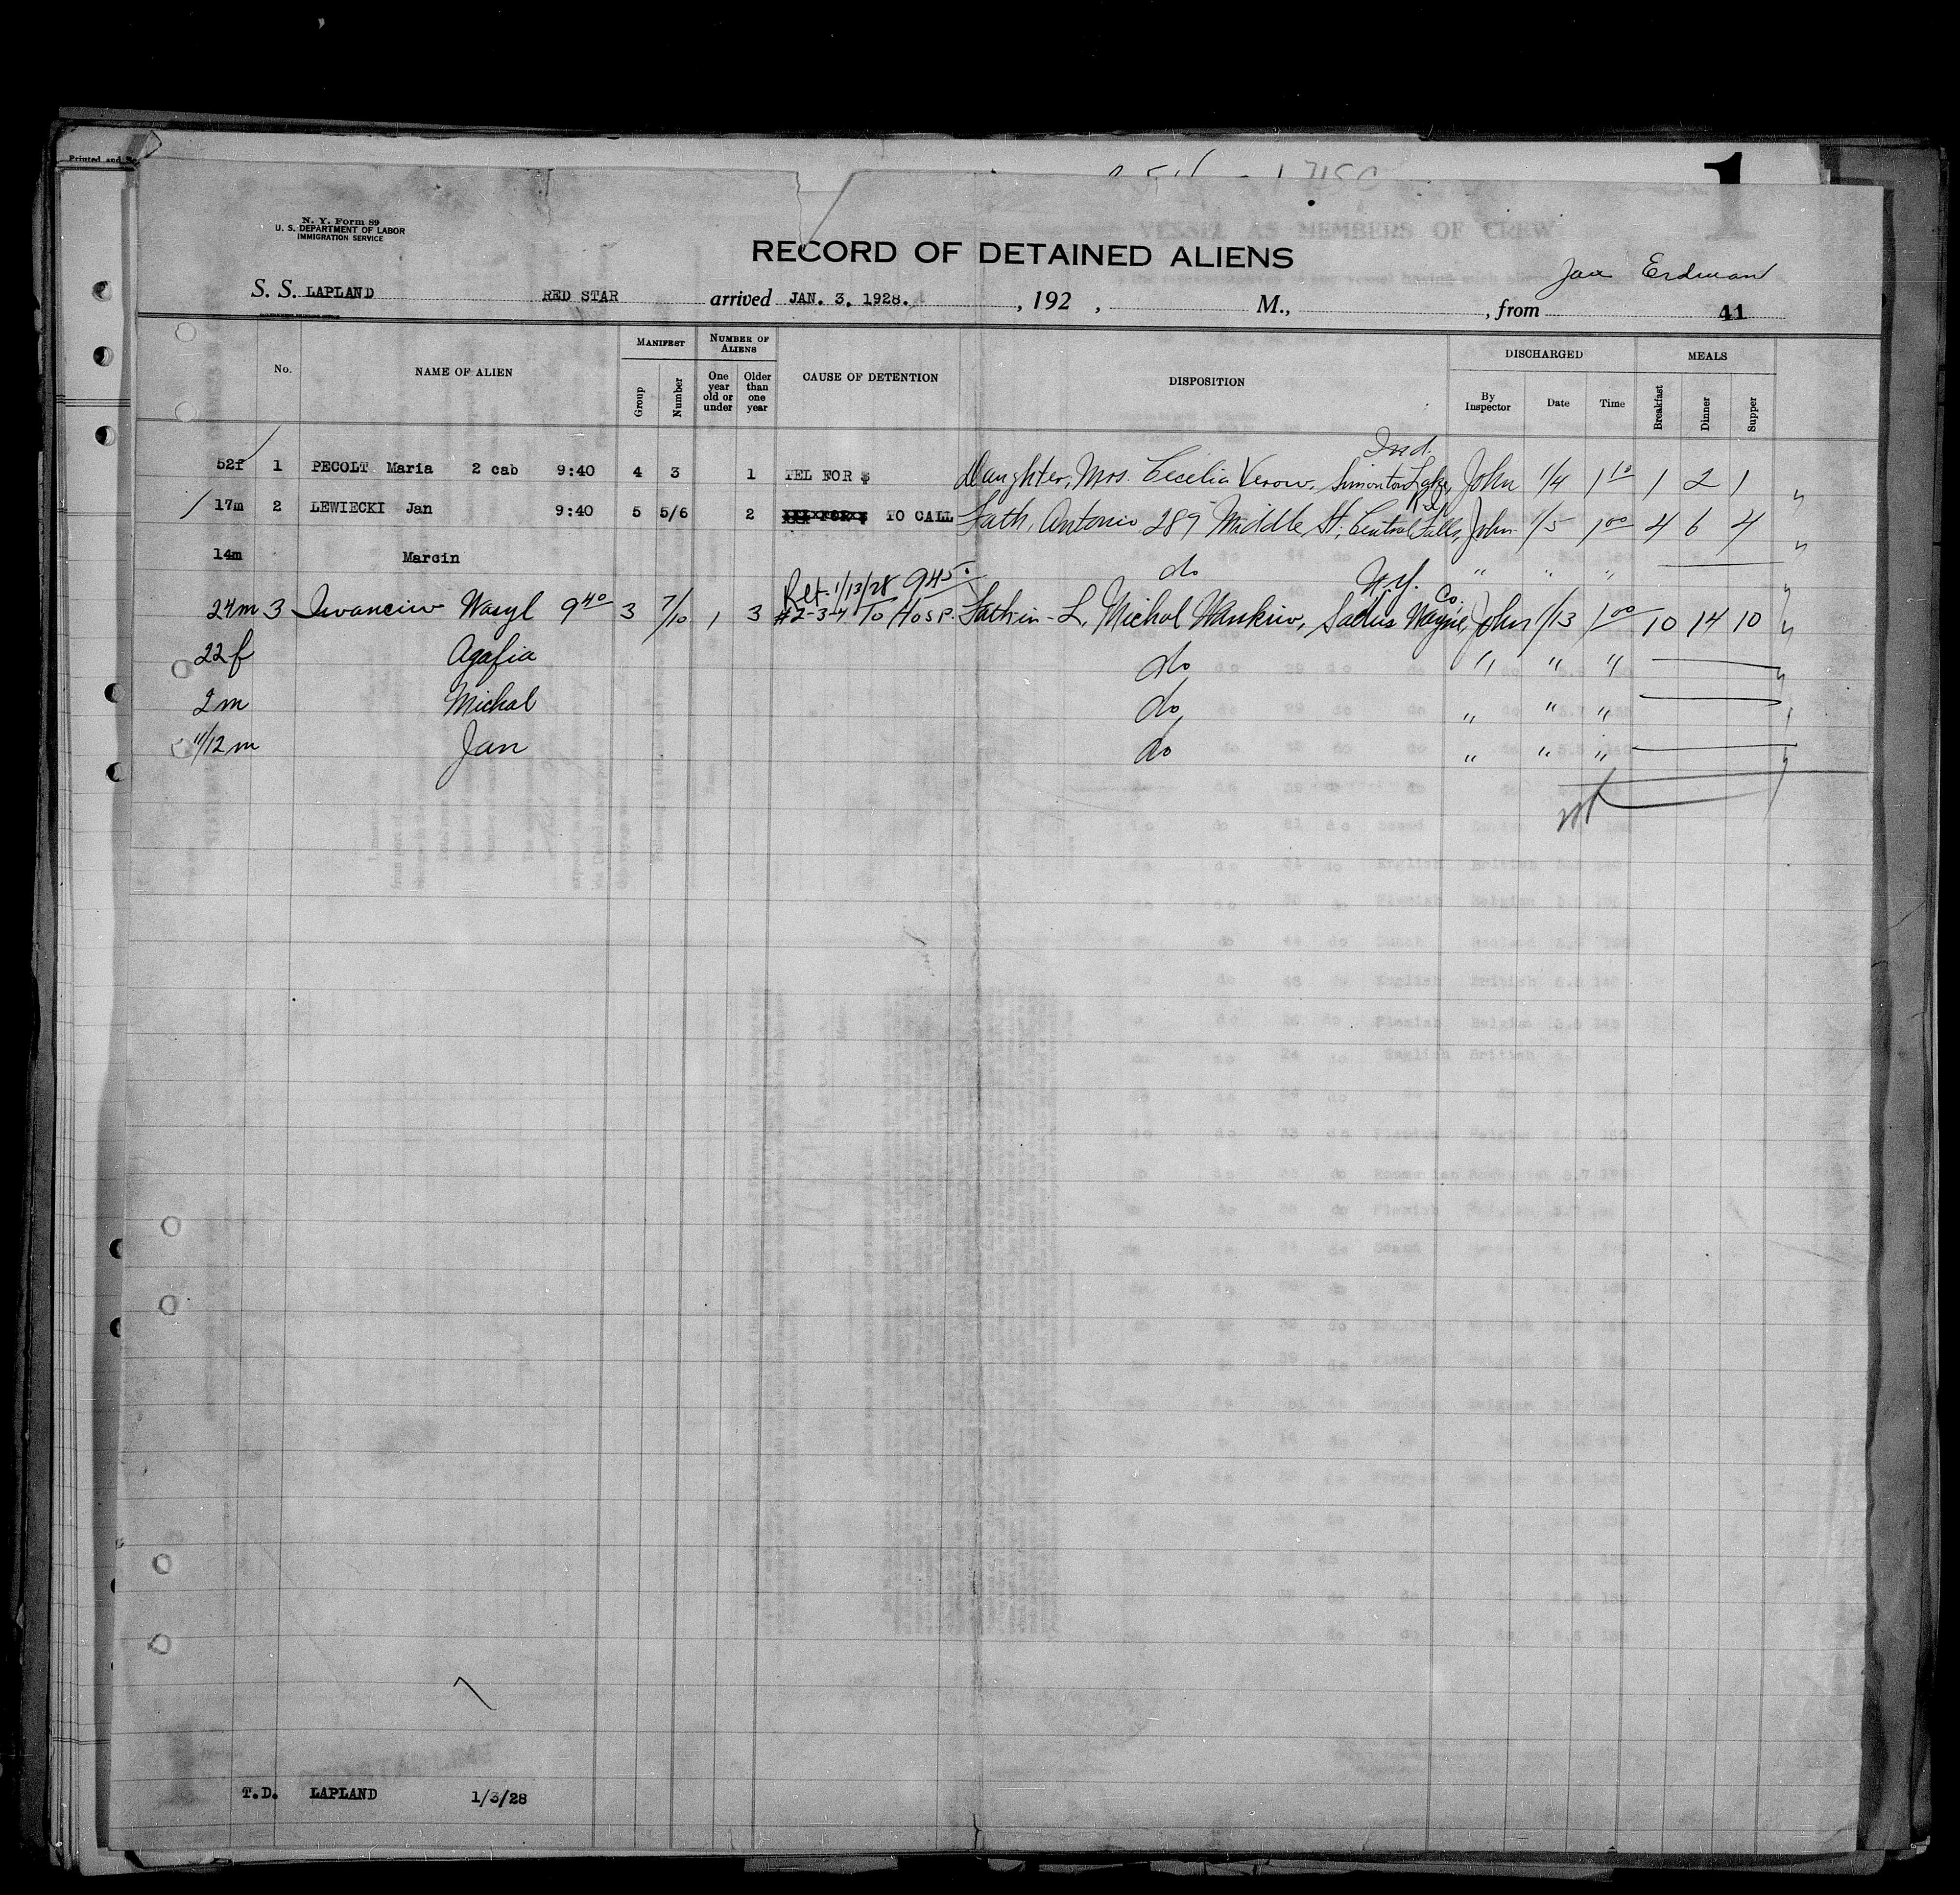 Printed and
1
N. Y. Form 89
U. S. DEPARTMENT OF LABOR
IMMIGRATION SERVICE
VESSEL AS MEMBERS OF CREW
RECORD OF DETAINED ALIENS
Jan Erdman
S. S. LAPLAND RED STAR arrived JAN. 3, 1928. , 192 , M., , from 41
No. NAME OF ALIEN MANIFEST Group Number NUMBER OF ALIENS One year old or under Older than one year CAUSE OF DETENTION DISPOSITION DISCHARGED By Inspector Date Time MEALS Breakfast Dinner Supper
Ind.
52f 1 PECOLT Maria 2 cab 9:40 4 3 1 TEL FOR $ Daughter, Mrs. Cecilia Verow, Simonton Lake, John 1/4 1 10 1 2 1 "
R.I.
17m 2 LEWIECKI Jan 9:40 5 5/6 2 TO CALL Fath, Antonio 289 Middle St, Central Falls, John 1/5 1 00 4 6 4 "
14m Marcin do " " "
Ret. 1/13/28 9 45 N.Y. Co.
24m 3 Iwanciw Wasyl 9 40 3 7/10 1 3 #2-3-4 To Hosp. Fath-in-L, Michal Wankiw, Sodus Wayne, John 1/13 1 00 10 14 10 "
22f Agafia do " " "
2m Michal do " " "
11/12m Jan do " " "
T.D. LAPLAND 1/3/28